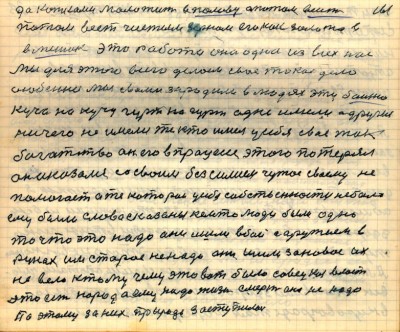 да колхозами молотить в половu а потом веять
потом веет чистым зерном его как золото в
в мешок это работа она одна из всех нас
мы для этого всего делаем свае такое дело
особенно мы с вами зародили в людях эту
куча на кучу гурт на гурт одне имели а другия
ничего не имели те кто имел у себя свае так
богатство он его в процессе этого потерял
он оказался со своим безсилием чужое своему не
помогает а те которые у них собственности не было
ему были слова сказаны кемто люди были одно
то что это надо они шли в бой с оружием в
руках им старое не надо они шли за новое их
не вело к тому чему это вот было советская власть
это есть народ ему надо жизнь смерть ему не надо
По этому за них природа заступилась